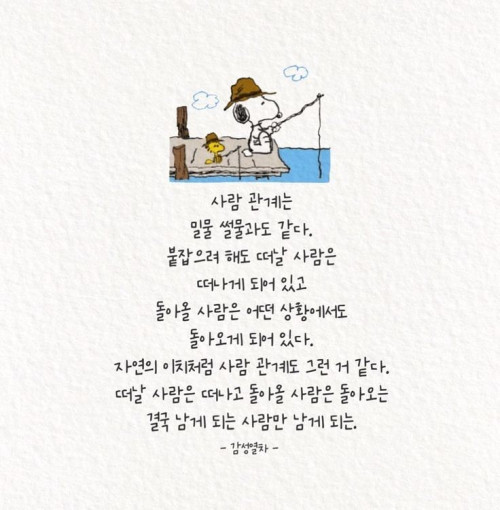 사람 관계는
밀물 썰물과도 같다.
붙잡으려 해도 떠날 사람은
떠나게 되어 있고
돌아올 사람은 어떤 상황에서도
돌아오게 되어 있다.
자연의 이치처럼 사람 관계도 그런 거 같다.
떠날 사람은 떠나고 돌아올 사람은 돌아오는
결국 남게 되는 사람만 남게 되는.
- 감성열차 -